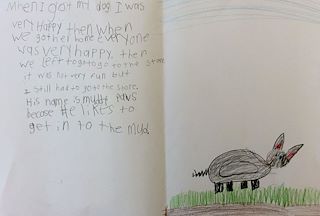 When I got my dog I was
very Happy then when
we got her home everyone
was very happy. then
we left to go to go to the store
it was not very fun but
I still had to go to the store.
His name is muddy Paws
because He likes to
get in to the mud